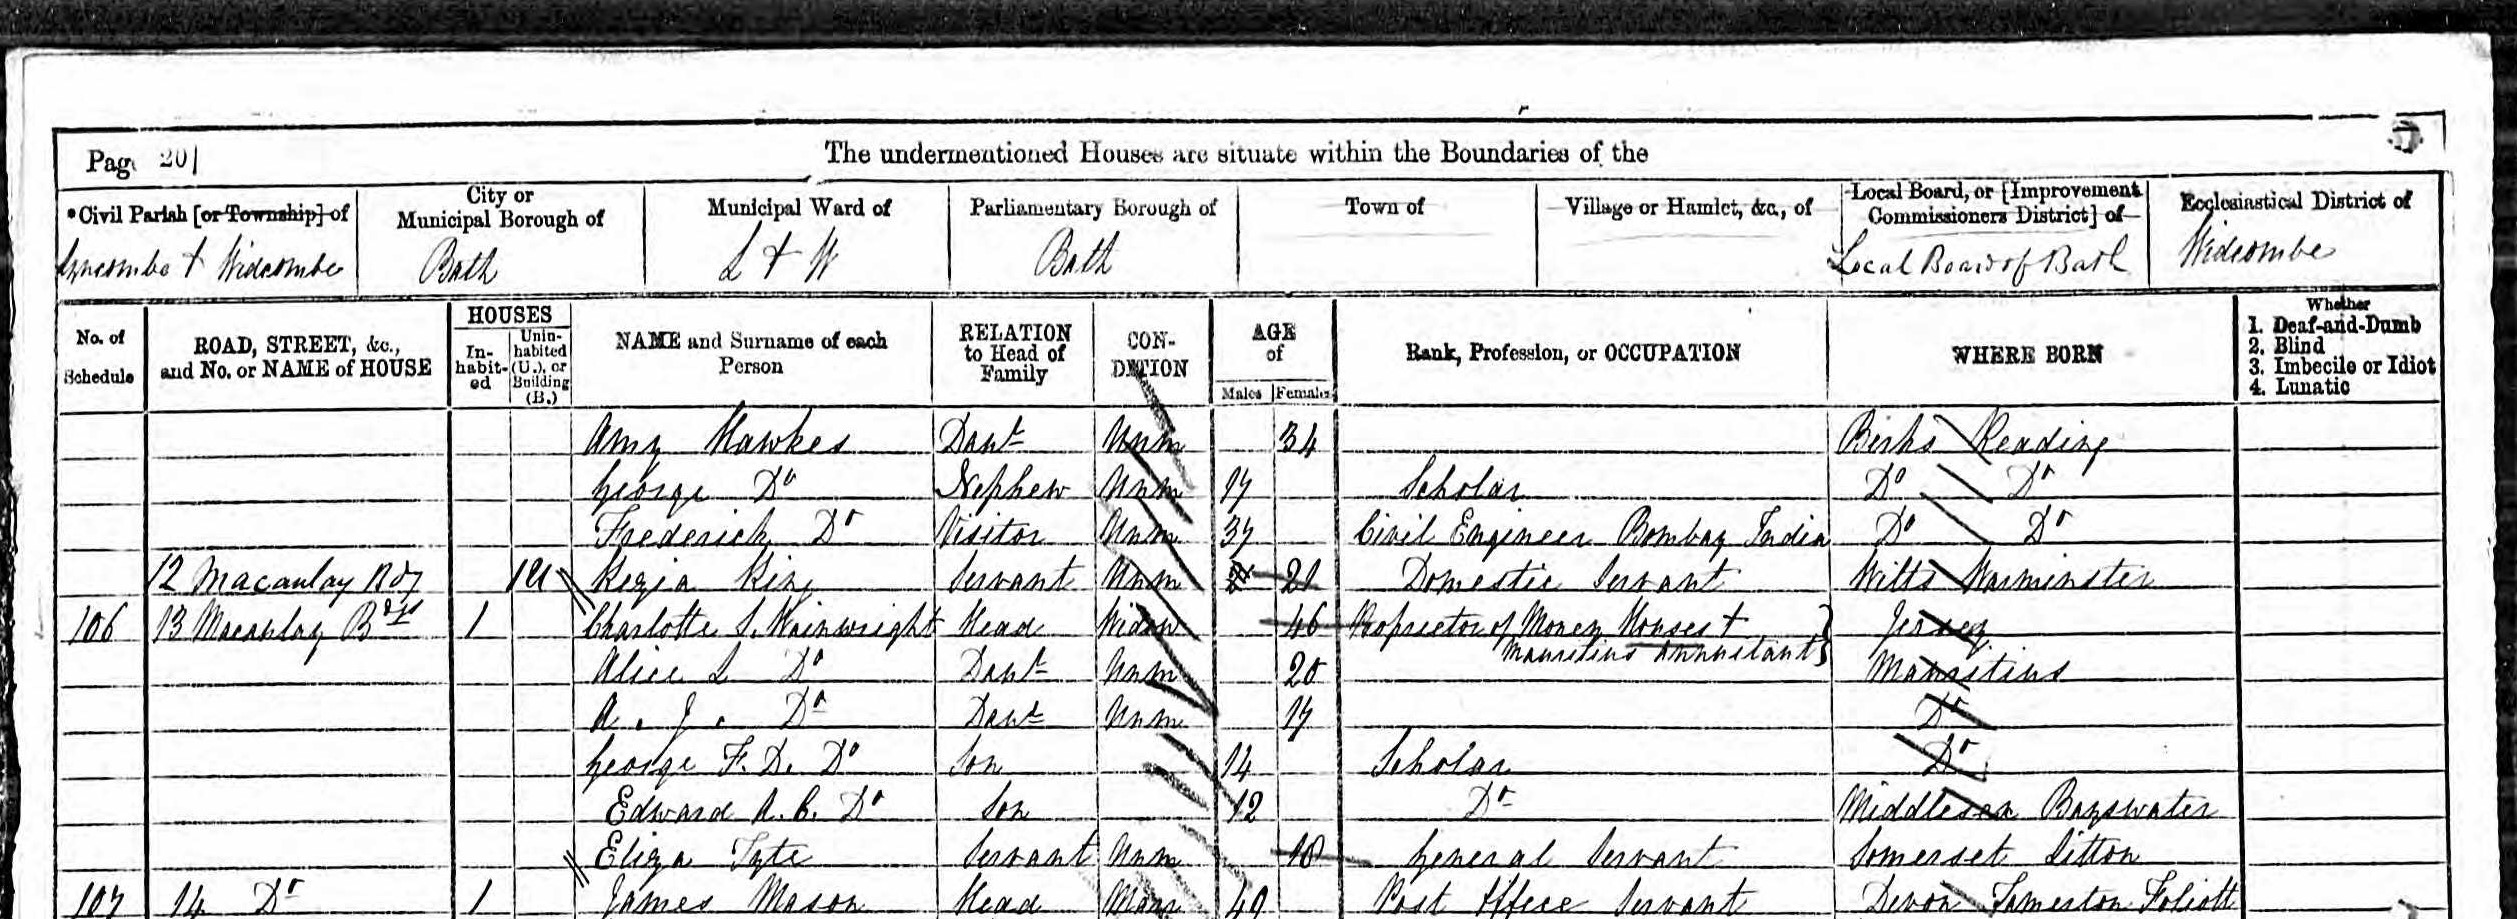 Page 20
The undermentioned Houses are situate within the Boundaries of the
*Civil Parish [or Township] of City or Municipal Borough of Municipal Ward of Parliamentary Borough of Town of Village or Hamlet, &c., of Local Board, or [Improvement Commissioners District] of Ecclesiastical District of
Lyncombe + Widcombe Bath L + W Bath Local Board of Bath Widcombe
No. of Schedule ROAD, STREET, &c., and No. or NAME of HOUSE HOUSES In-habit-ed Unin-habited (U.), or Building (B.) NAME and Surname of each Person RELATION to Head of Family CON-DITION AGE of Males Females Rank, Profession, or OCCUPATION WHERE BORN Whether 1. Deaf-and-Dumb 2. Blind 3. Imbecile or Idiot 4. Lunatic
Amy Hawkes Daur Unm 34 Berks Reading
George Do Nephew Unm 17 Scholar Do Do
Frederick Do Visitor Unm 37 Civil Engineer Bombay India Do Do
12 Macaulay 1U Kezia King Servant Unm 21 Domestic Servant Wilts Warminster
106 13 Macaulay Bdgs 1 Charlotte S. Wainwright Head Widow 46 Proprietor of Money Houses +
Mauritius Annuitant Jersey
Alice L Do Daur Unm 20 Mauritius
A. J. Do Daur Unm 17 Do
George F. D. Do Son 14 Scholar Do
Edward A. C. Do Son 12 Do Middlesex Bayswater
Eliza Tyte Servant Unm 18 General Servant Somerset Litton
107 14 Do 1 James Mason Head Marr 49 Post Office Servant Devon Tamerton Foliott